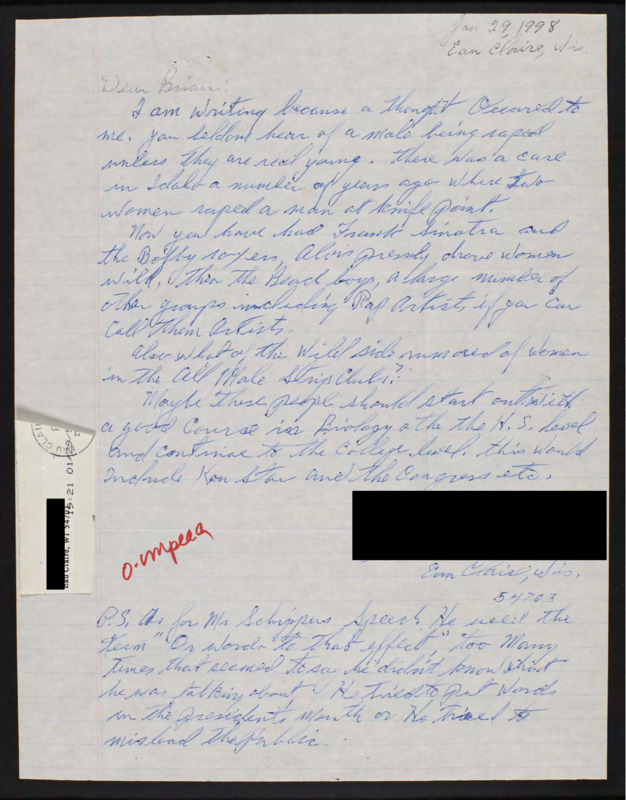 Jan 29 1998
Eau Claire, Wis.
Dear Brian:
I am writing because a thought Occured to
me. you seldom hear of a male being raped
unless they are real young. There was a case
in Idaho a number of years ago where two
women raped a man at knife point.
Now you have had Frank Sinatra and
the Bobby soxers, Alvis pressly drove women
wild, then the Beach boys, a large number of
other groups including Rap Artists, if you can
call them Artists.
Also what of the Wild side rumored of women
in the All Male Strip Clubs?
Maybe these people should start out with
a good Course in Biology at the H.S. level
and continue to the College level. this would
include Ken Star and the Congress etc.
CLAI
19:21 01/29
Eau Claire, WI 54703
O-impeach
Eau Claire, Wis.
54703
P.S. As for Mr Schippers Speech. He used the
term "Or words to that effect," too Many
times that seemed to say he didn't know what
he was talking about. He tried to put words
in the presidents mouth or He tried to
mislead the public.